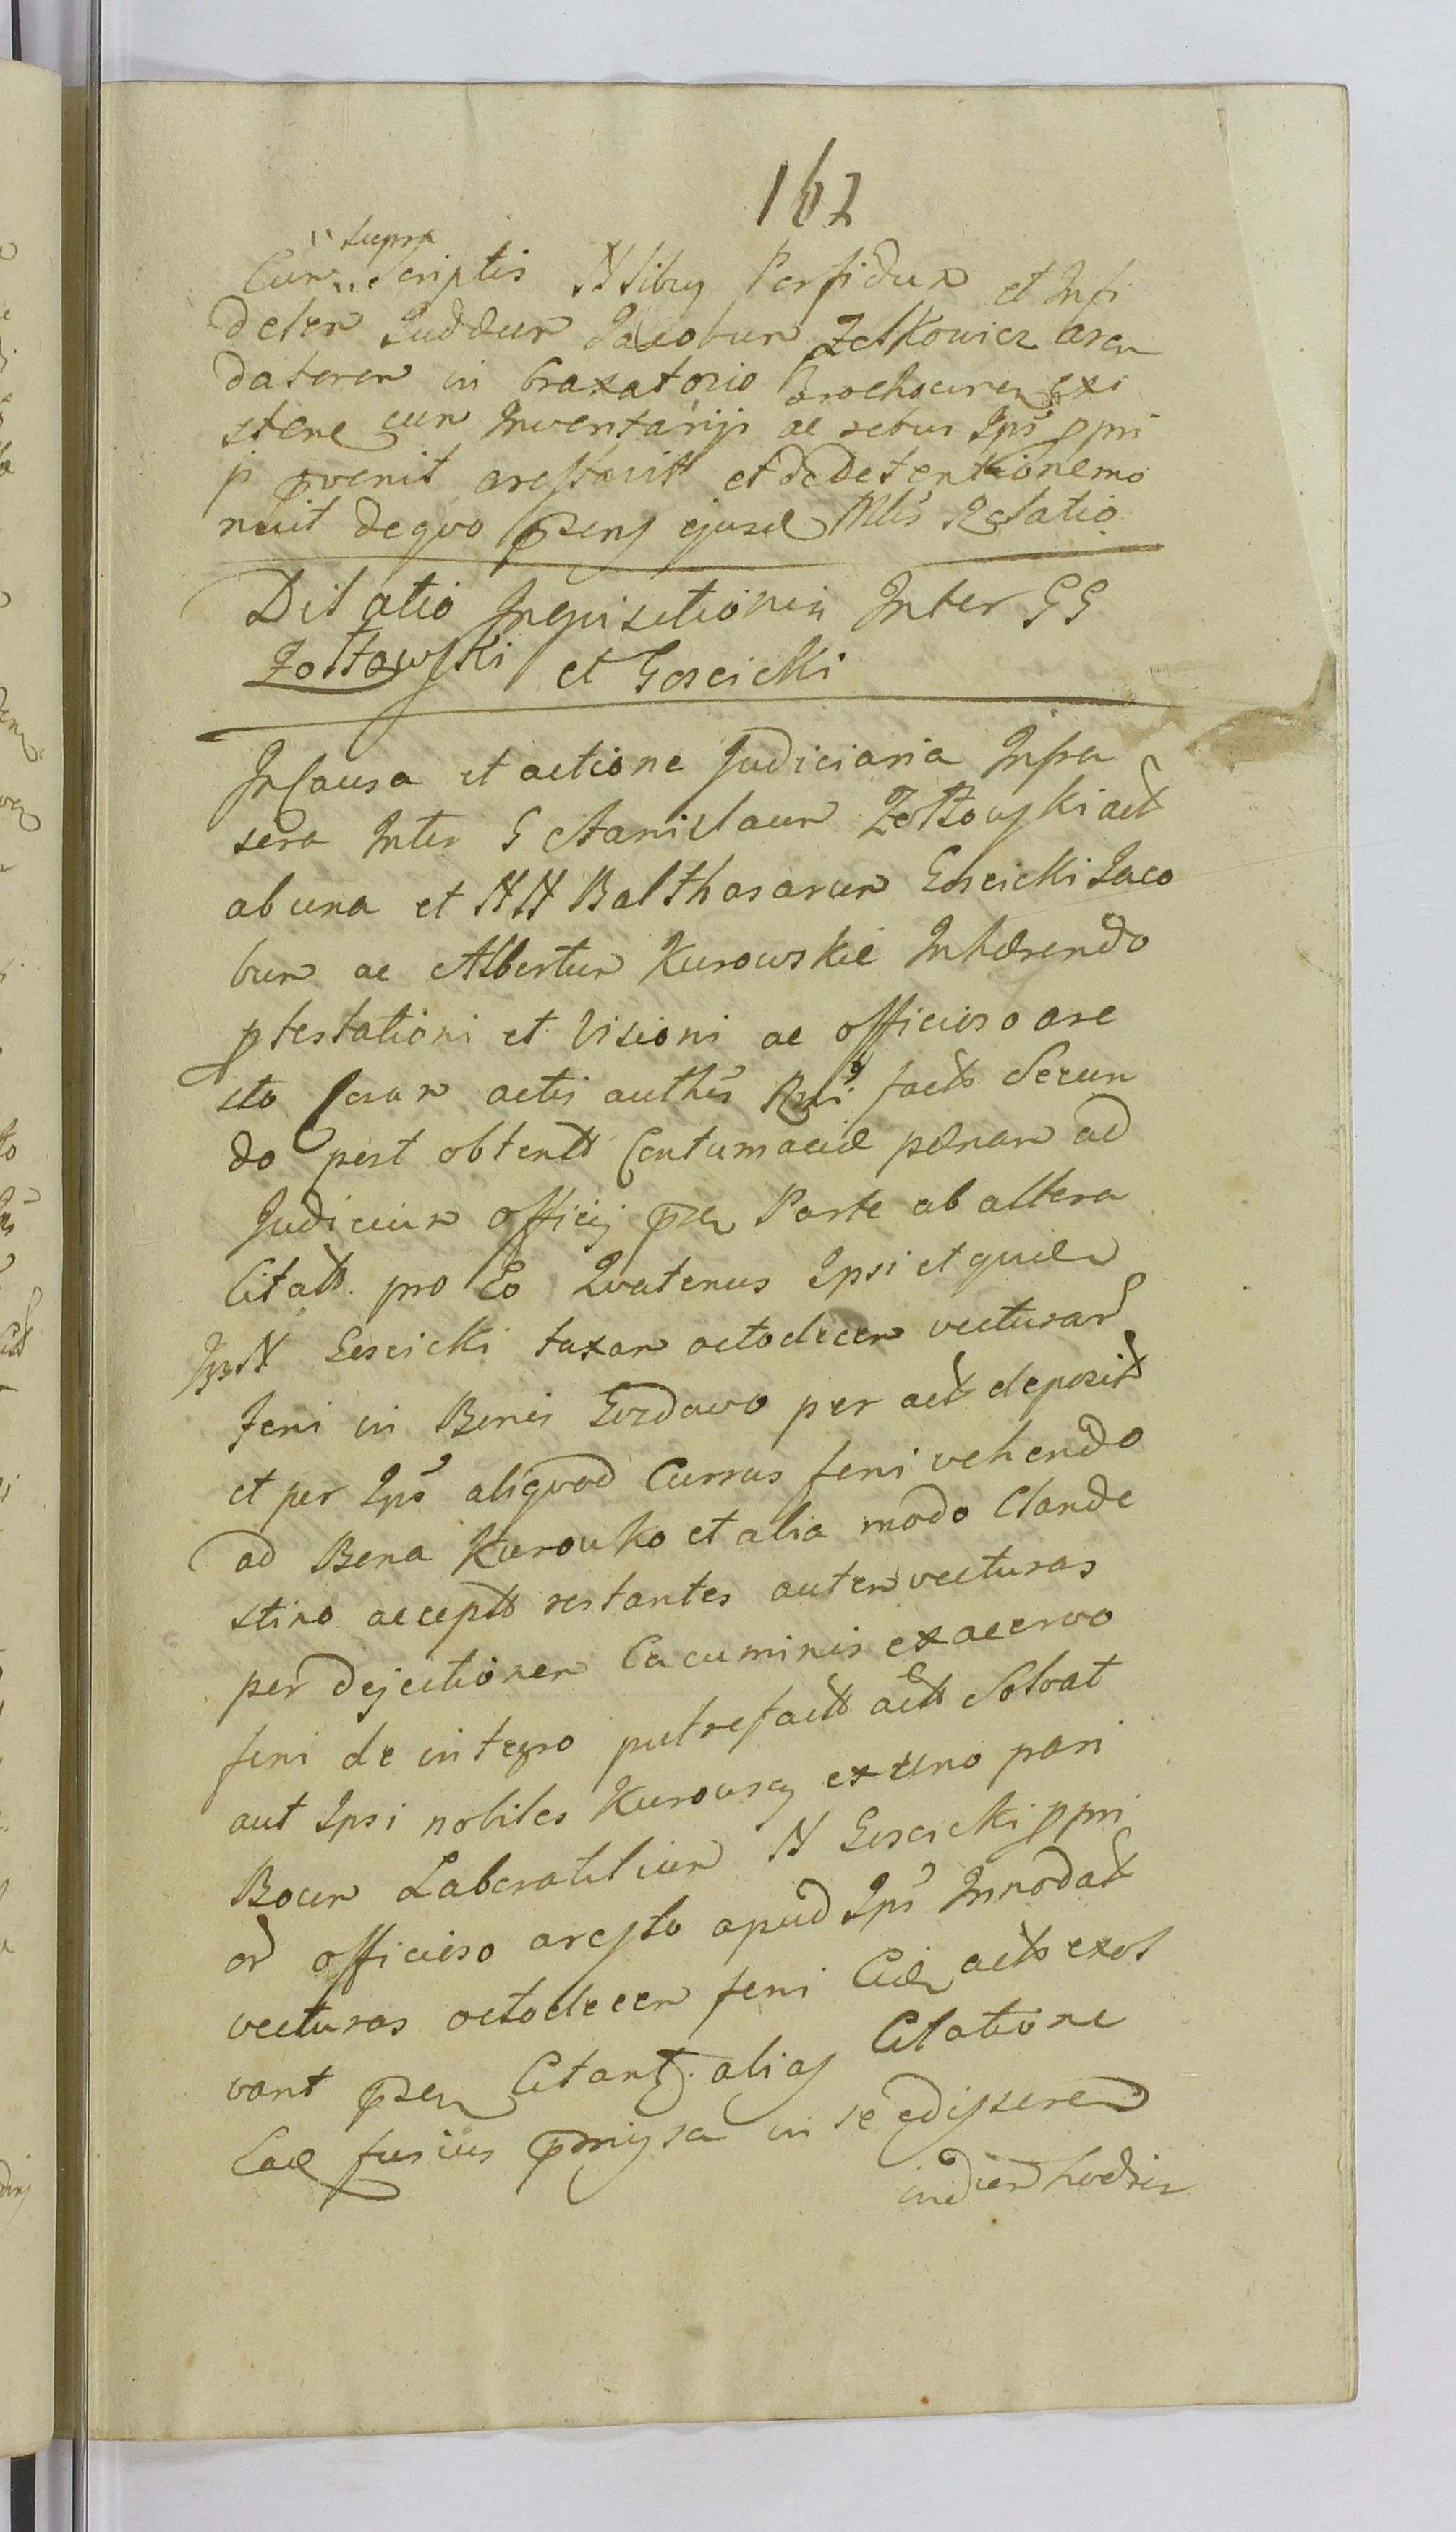 162
supra
Cum scriptis Nlibus Perfidum et Infi
delem Judæum Jacobum Zelkowicz aren
datorem in braxatorio Brochocinen exi
sten cum Inventarijs ac rebus Ips ppri
js pvenit arestavit et de detentione mo
nuit de qvo psens ejusd Mlis Relatio
Dilatio Inqvisitionis Inter GG
Zołtowski et Goscicki
In Causa et actione Judiciaria Infra
scra Inter G Stanislaum Zołtowski act
ab una et NN Balthasarum Goscicki Jaco
bum ac Albertum Kurowskie Inhærendo
ptestationi et Visioni ac officioso are
sto coram actis auths Rni fact Secun
do post obtent Contumaciæ pænam ad
Judicium officij psen Parte ab altera
Citatt. pro Eo Qvatenus Ipsi et qvidem
N Goscicki taxam octodecem vecturar
feni in Bonis Gozdowo per act deposit
et per Ips aliqvod Currus feni vehendo
ad Bona Kurowko et alia modo Clande
stino accept restantes autem vecturas
per dejectionem Cacuminis ex acervo
feni de integro putrefact act Solvat
aut Ipsi nobiles Kurowscy ex uno pari
Boum Laboratilium N Goscicki ppri
or officioso aresto apud Ips Innodat
vecturas octodecem feni act exol
vant psen Citant alias Citatione
Ead fusius pmissa in se edisseren
in diem hodier